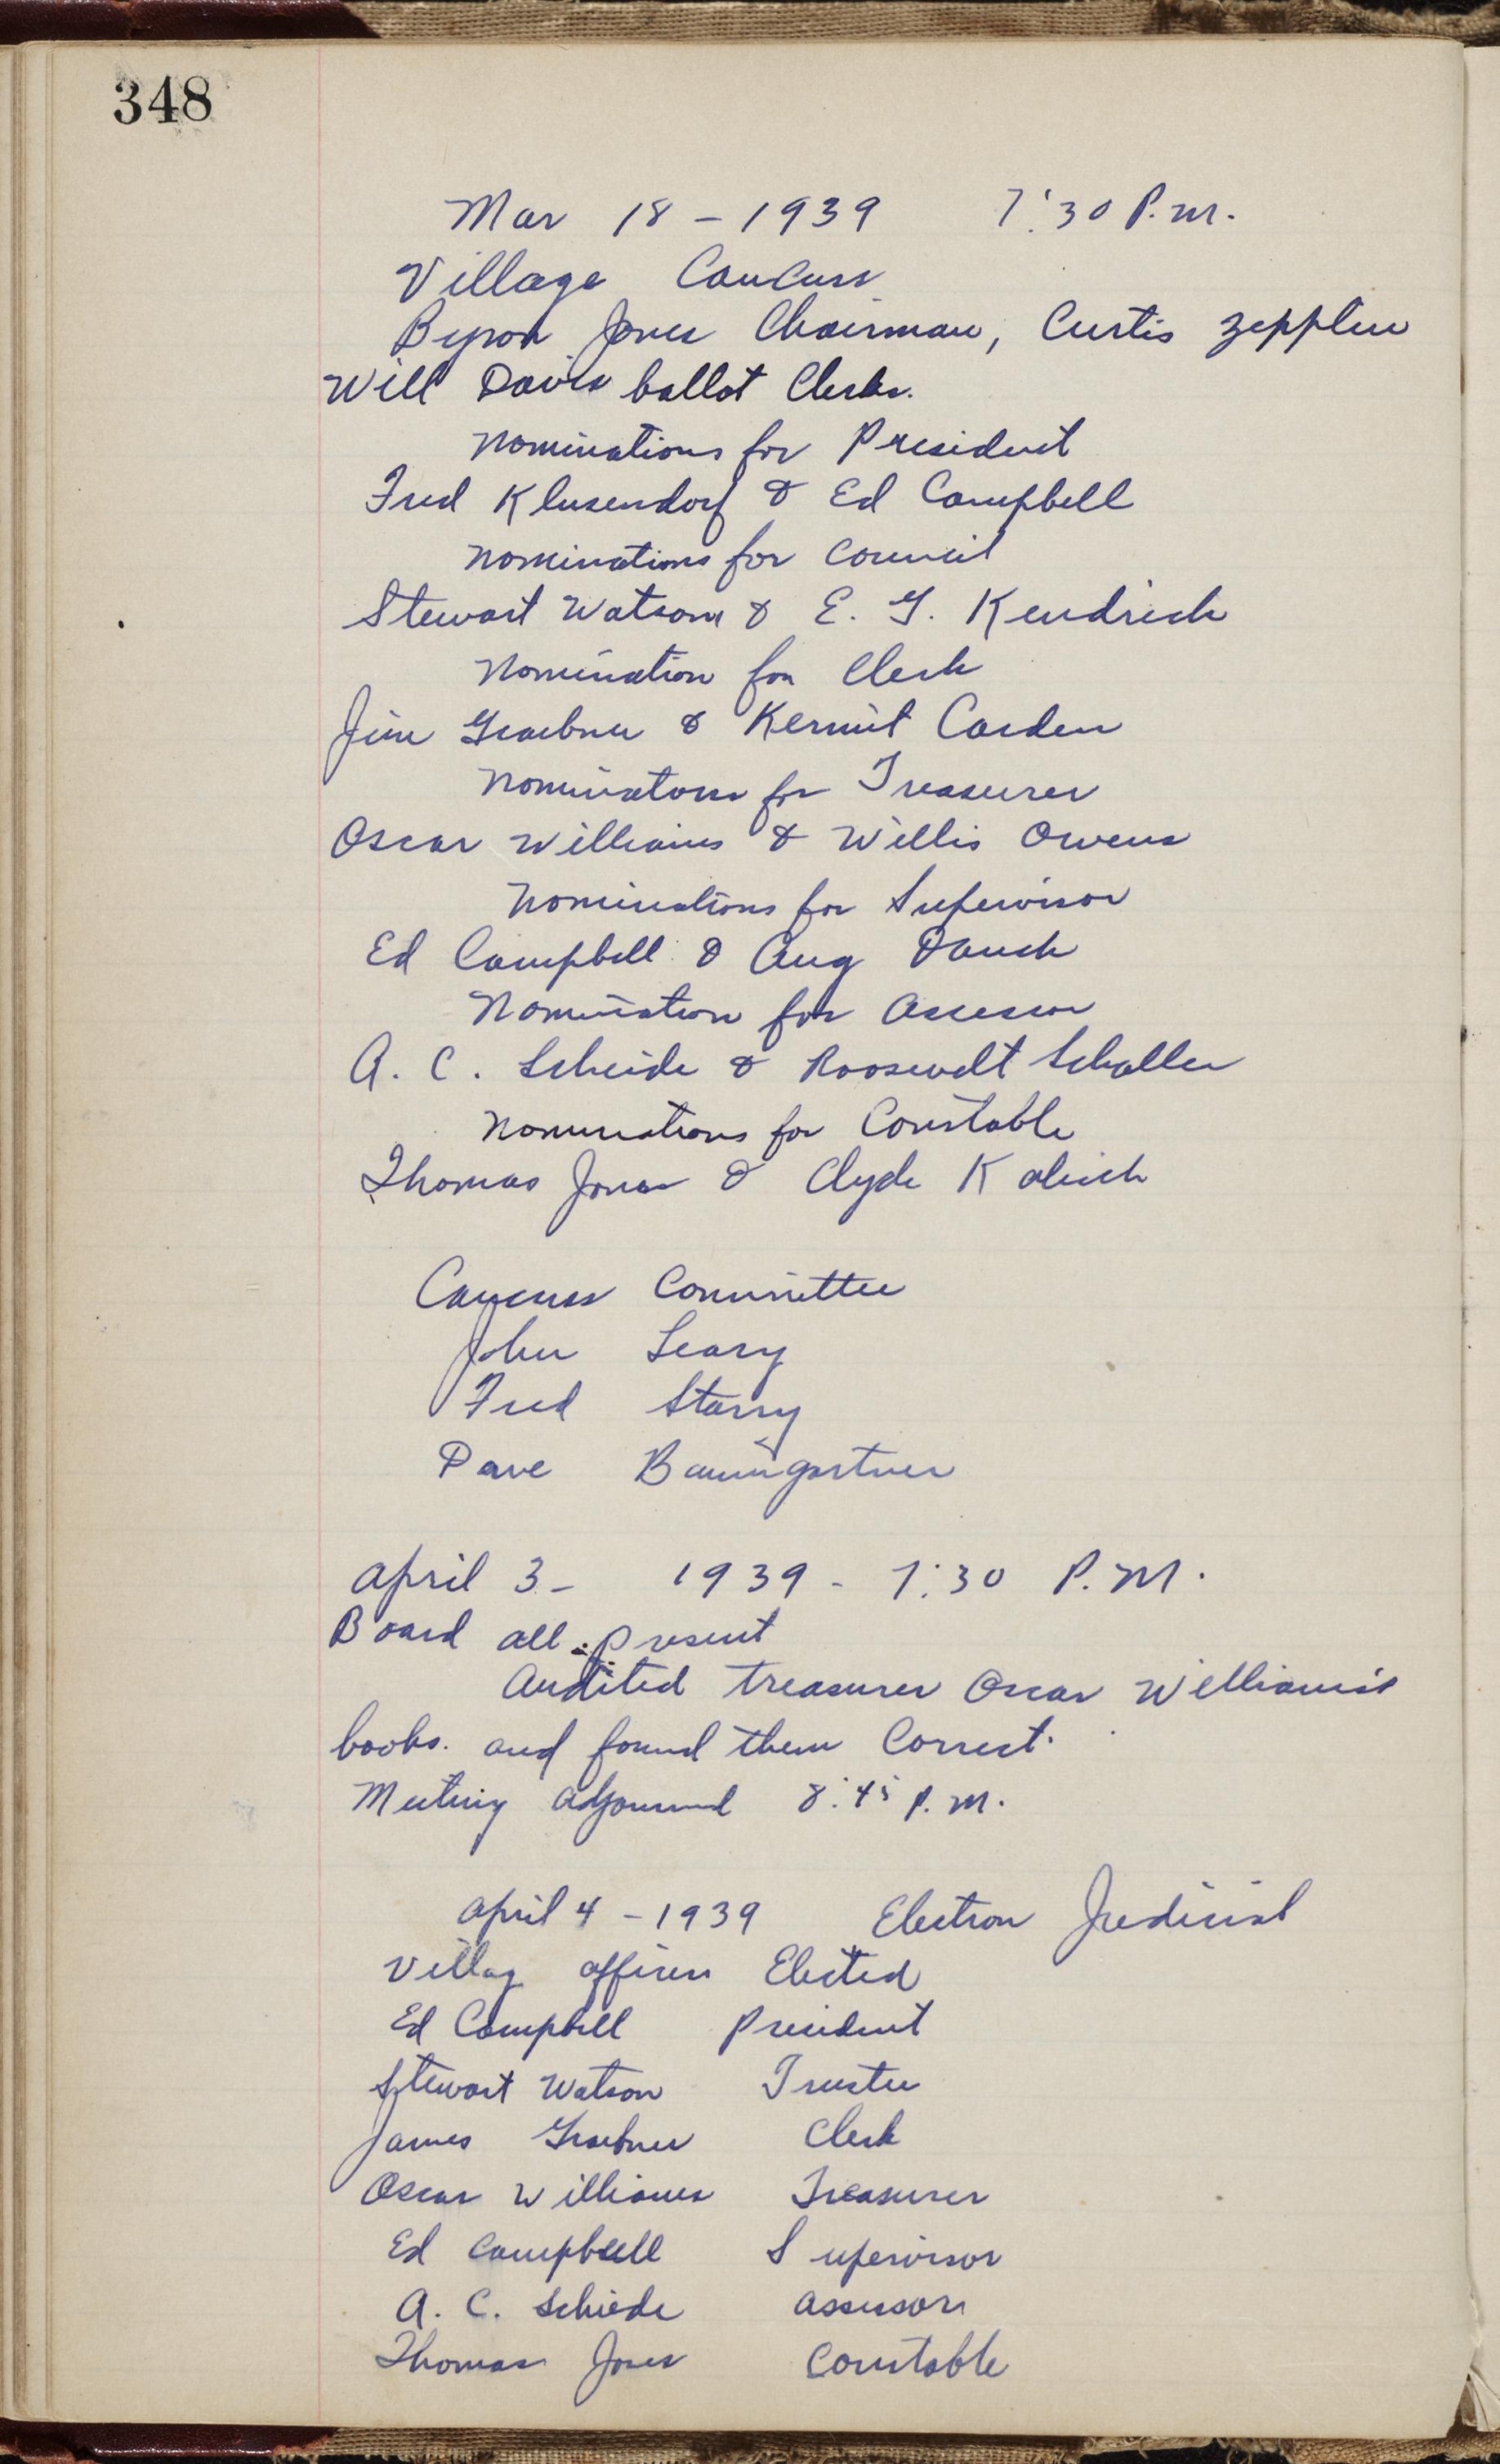 348
Mar 18 - 1939 7:30 P.M.
Village Caucuss
Byron Jones Chairman, Curtis Zepplin
Will Davis ballot Clerks.
Nominations for President
Fred Klusendorf & Ed Campbell
Nominations for Council
Stewart Watson & E. G. Kendrick
Nomination for Clerk
Jim Graebner & Kermit Carden
Nominatons for Treasurer
Oscar Williams & Willis Owens
Nominations for Supervisor
Ed Campbell & Aug Dauck
Nomination for Assessor
A. C. Scheide & Roosevelt Schaller
Nominations for Constable
Thomas Jones & Clyde Kolich
Caucuss Committee
John Leary
Fred Starry
Dave Baumgartner
April 3 - 1939 - 7:30 P.M.
Board all present
Audited treasurer Oscar Williams's
books. and found them Correct.
Meeting adjourned 8:45 P.M.
April 4 - 1939 Election Judicial
Villag officers Elected
Ed Campbell President
Stewart Watson Trustee
James Graebner Clerk
Oscar Williams Treasurer
Ed Campbell Supervisor
A. C. Schiede Assessor
Thomas Jones Constable